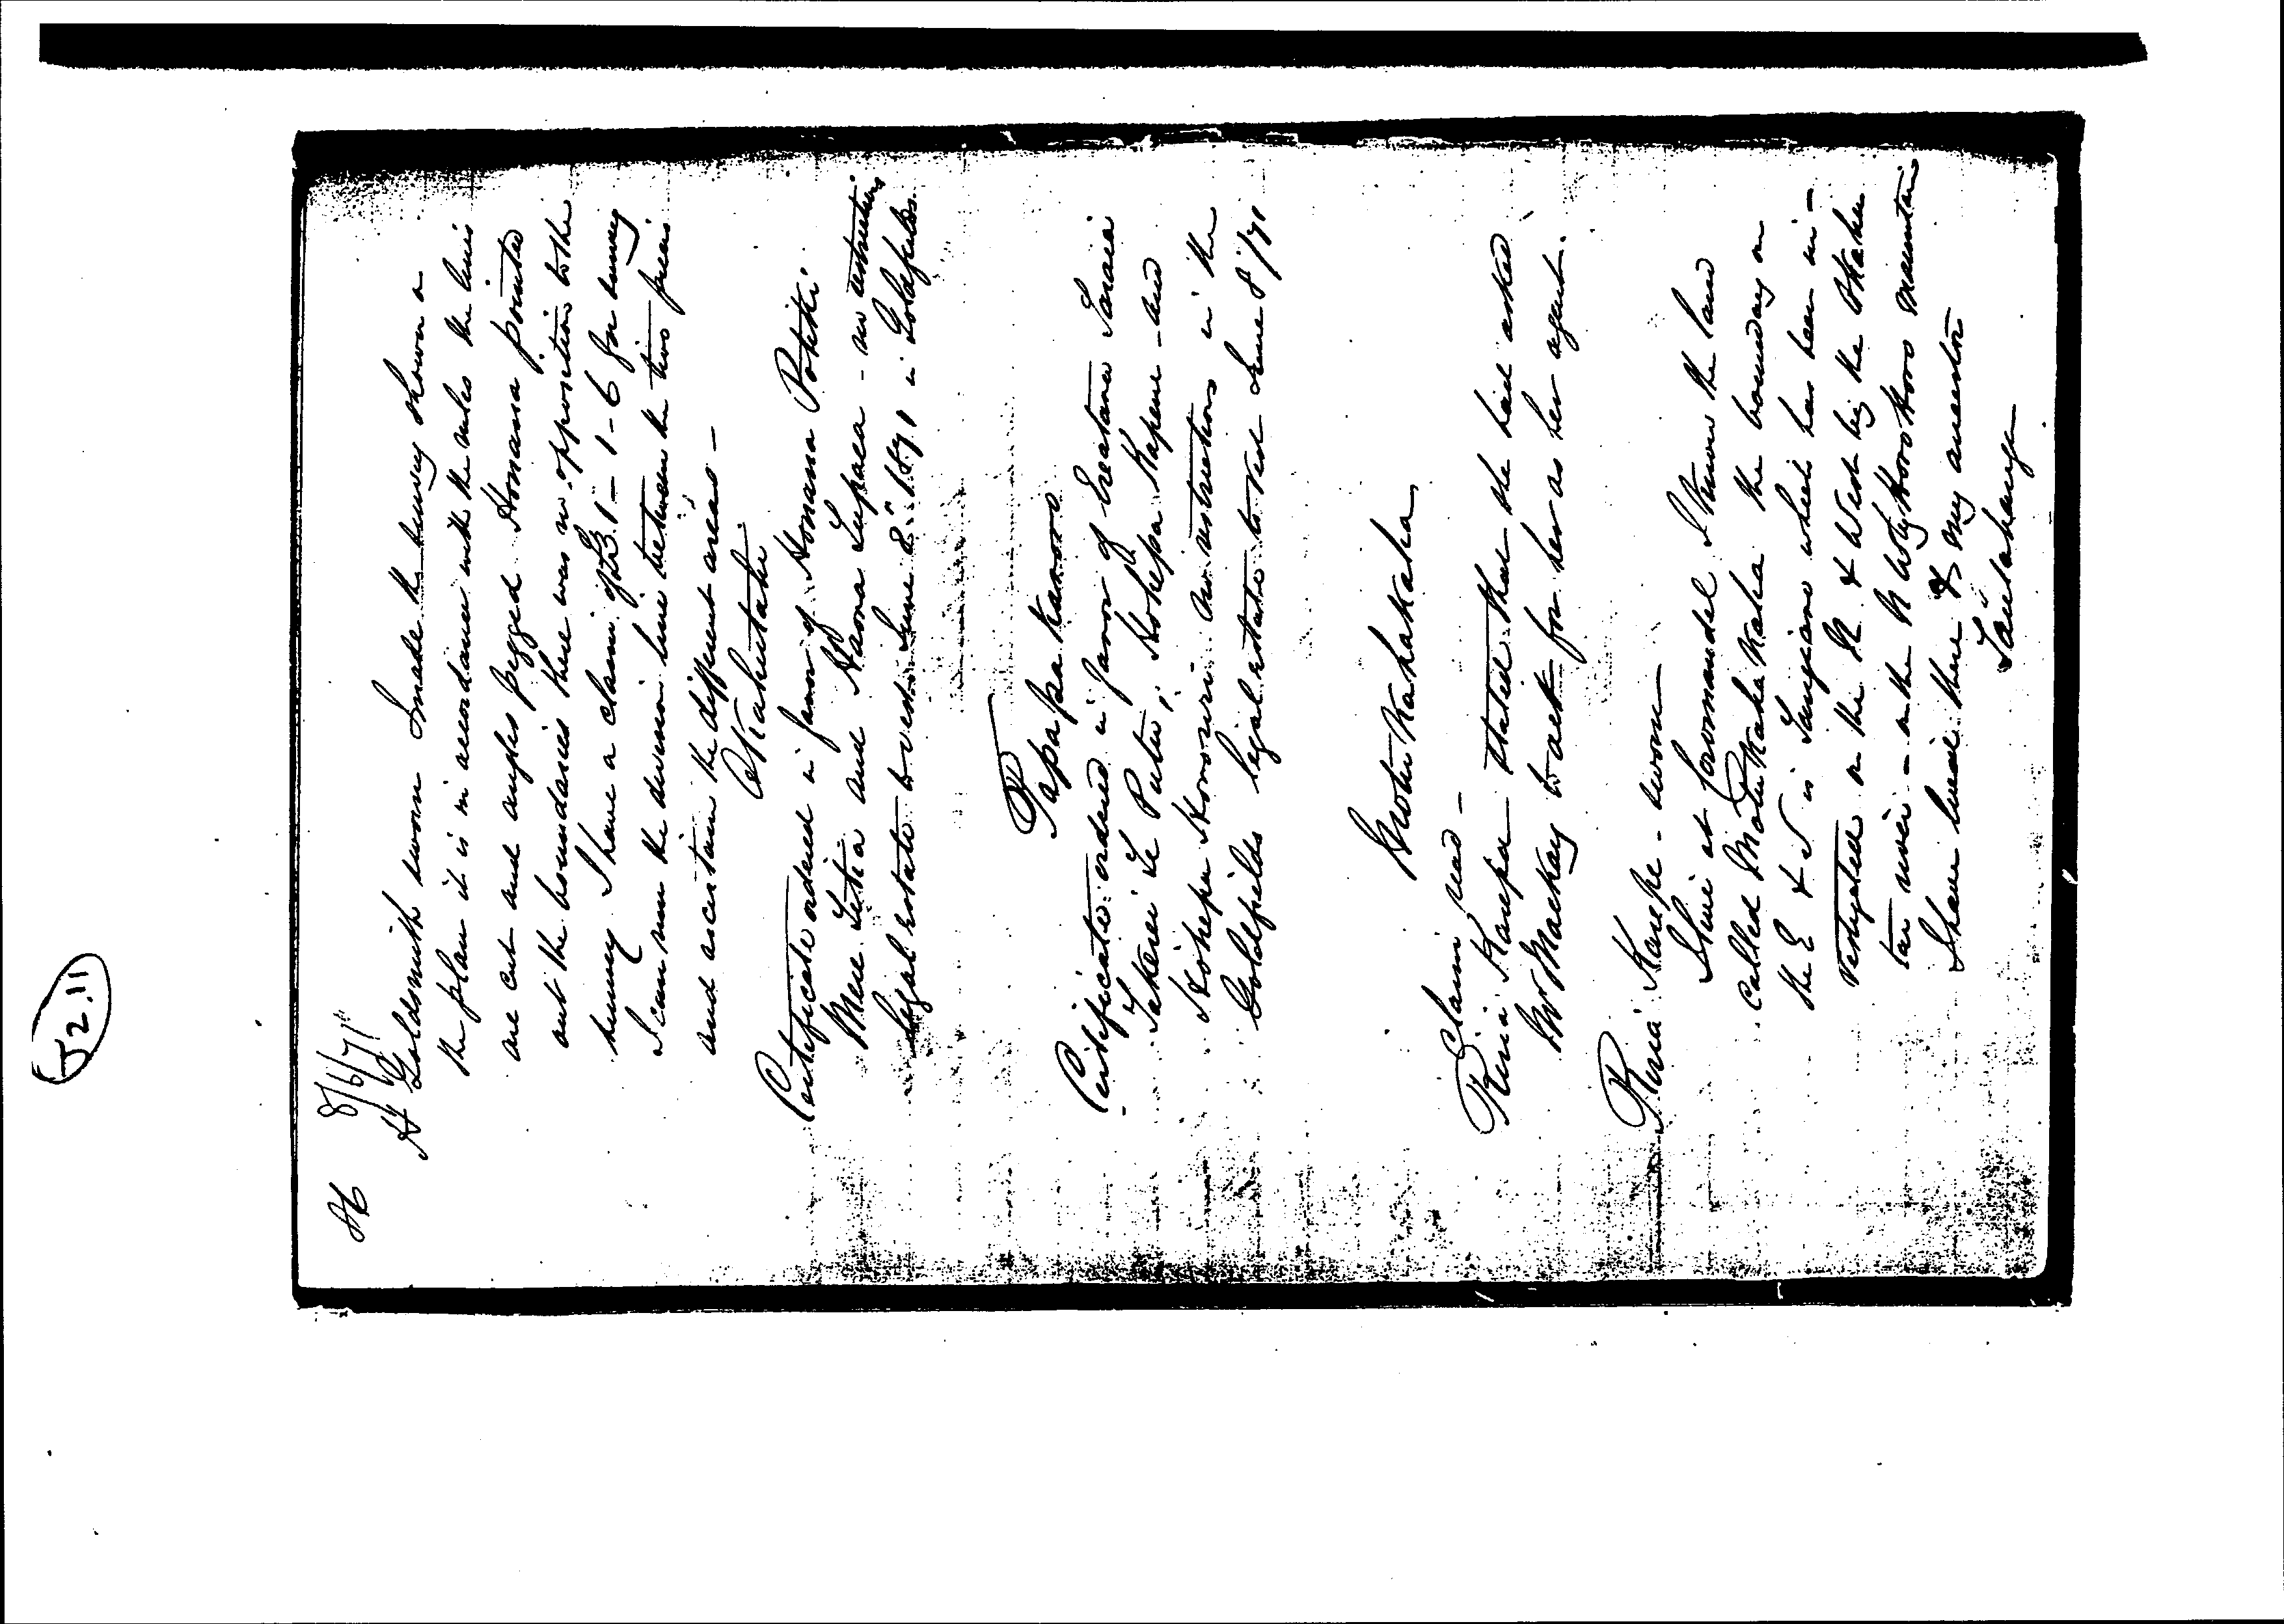 52.11
86
8/6/71
H Goldsmith sworn I made the survey shown on
the plan it is in accordance with the rules the lines
are cut and angles pegged Honana pointed
out the boundaries there was no opposition to the
survey I have a claim of £3.1-1-6 for survey
I can run the division line between the two pieces
and ascertain the different areas -
Kahutahi
Certificate ordered in favor of Honana Potiki
Mere Titia and Haora Tupaea - no restrictions
legal estate to vest June 8th 1871 in Goldfields.
Papapa Karoro
Certificate ordered in favor of Ereatara Taraia
Takerei Te Putu, Hohepa Kapene and
Hohepa Horowiri no restrictions in the
Goldfields legal estate to vest June 8th/71
Motu Kahakaha
Claim read -
Riria Karepe stated that she had asked
Mr Mackay to act for her as her agent.
Riria Karepe - sworn
I live at Coromandel I know the land
called Motukahakaha the boundary on
the E & S is Tangiaro which has been in-
vestigated on the N. & West by the Otahu
tau river - on the N W by
mountain
I have lived there & my ancestor
Tautahanga